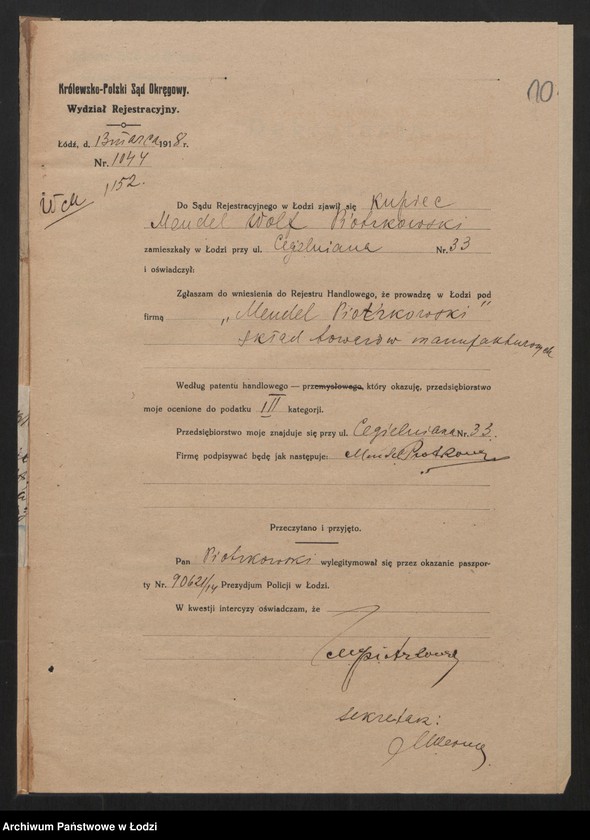 Królewsko-Polski Sąd Okręgowy.
10.
Wydział Rejestracyjny.
Łódź, d. 13 marca 1918 r.
Nr. 1044
1152.
Do Sądu Rejestracyjnego w Łodzi zjawił się Kupiec
Mendel Wolf Piotrkowski
zamieszkały w Łodzi przy ul. Cegielniana Nr. 33
i oświadczył:
Zgłaszam do wniesienia do Rejestru Handlowego, że prowadzę w Łodzi pod
firmą „Mendel Piotrkowski"
skład towarów manufakturowych
Według patentu handlowego — przemysłowego, który okazuję, przedsiębiorstwo
moje ocenione do podatku III kategorji.
Przedsiębiorstwo moje znajduje się przy ul. Cegielniana Nr. 33.
Firmę podpisywać będę jak następuje: Mendel Piotrkowski
Przeczytano i przyjęto.
Pan Piotrkowski wylegitymował się przez okazanie paszpor-
ty Nr. 90621/14 Prezydjum Policji w Łodzi.
W kwestji intercyzy oświadczam, że
M Piotrkowski
Sekretarz:
Archiwum Państwowe w Łodzi